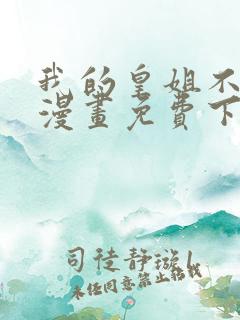 我的皇姐不
漫畫免費下
司徒静璇l
未经同意禁止转载